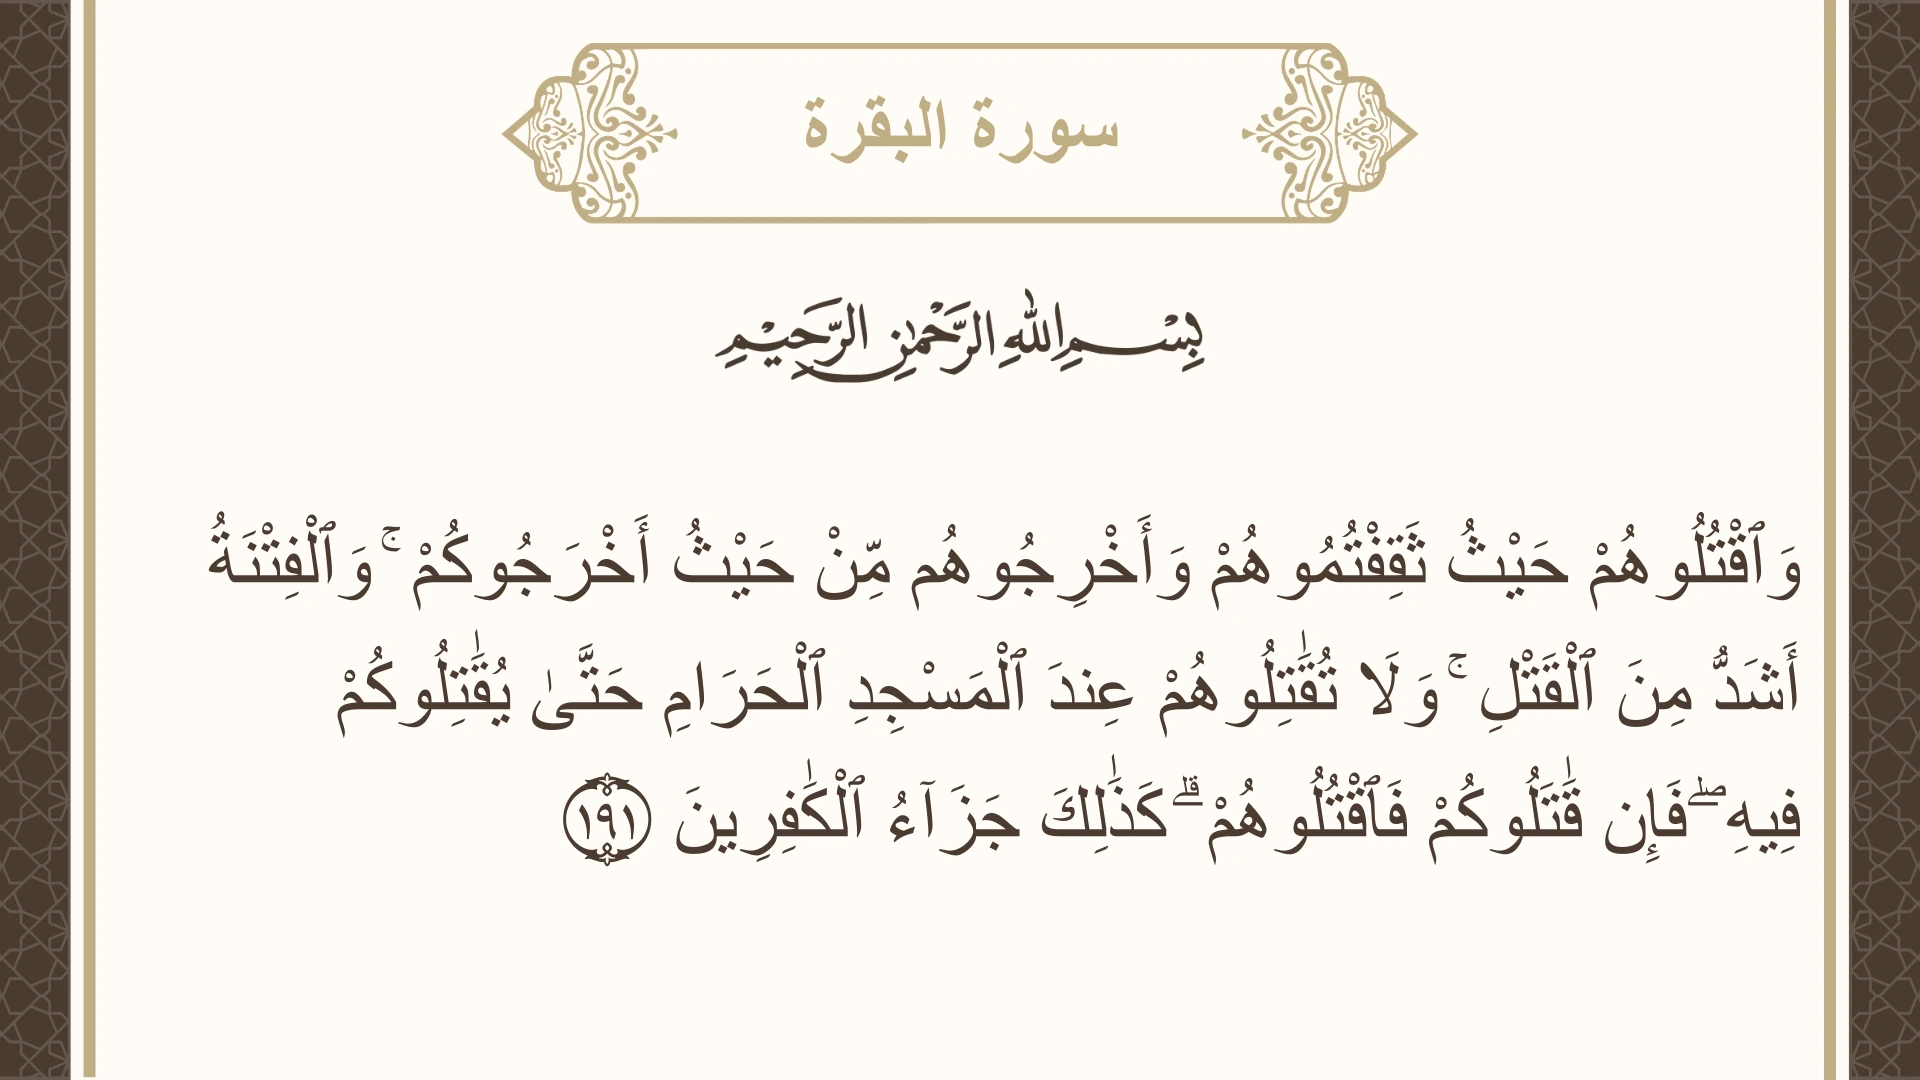 سورة البقرة
بِسْمِ اللهِ الرَّحْمٰنِ الرَّحِيْمِ
وَٱقْتُلُوهُمْ حَيْثُ ثَقِفْتُمُوهُمْ وَأَخْرِجُوهُم مِّنْ حَيْثُ أَخْرَجُوكُمْ ۚ وَٱلْفِتْنَةُ
أَشَدُّ مِنَ ٱلْقَتْلِ ۚ وَلَا تُقَٰتِلُوهُمْ عِندَ ٱلْمَسْجِدِ ٱلْحَرَامِ حَتَّىٰ يُقَٰتِلُوكُمْ
فِيهِ ۖ فَإِن قَٰتَلُوكُمْ فَٱقْتُلُوهُمْ ۗ كَذَٰلِكَ جَزَآءُ ٱلْكَٰفِرِينَ ١٩١